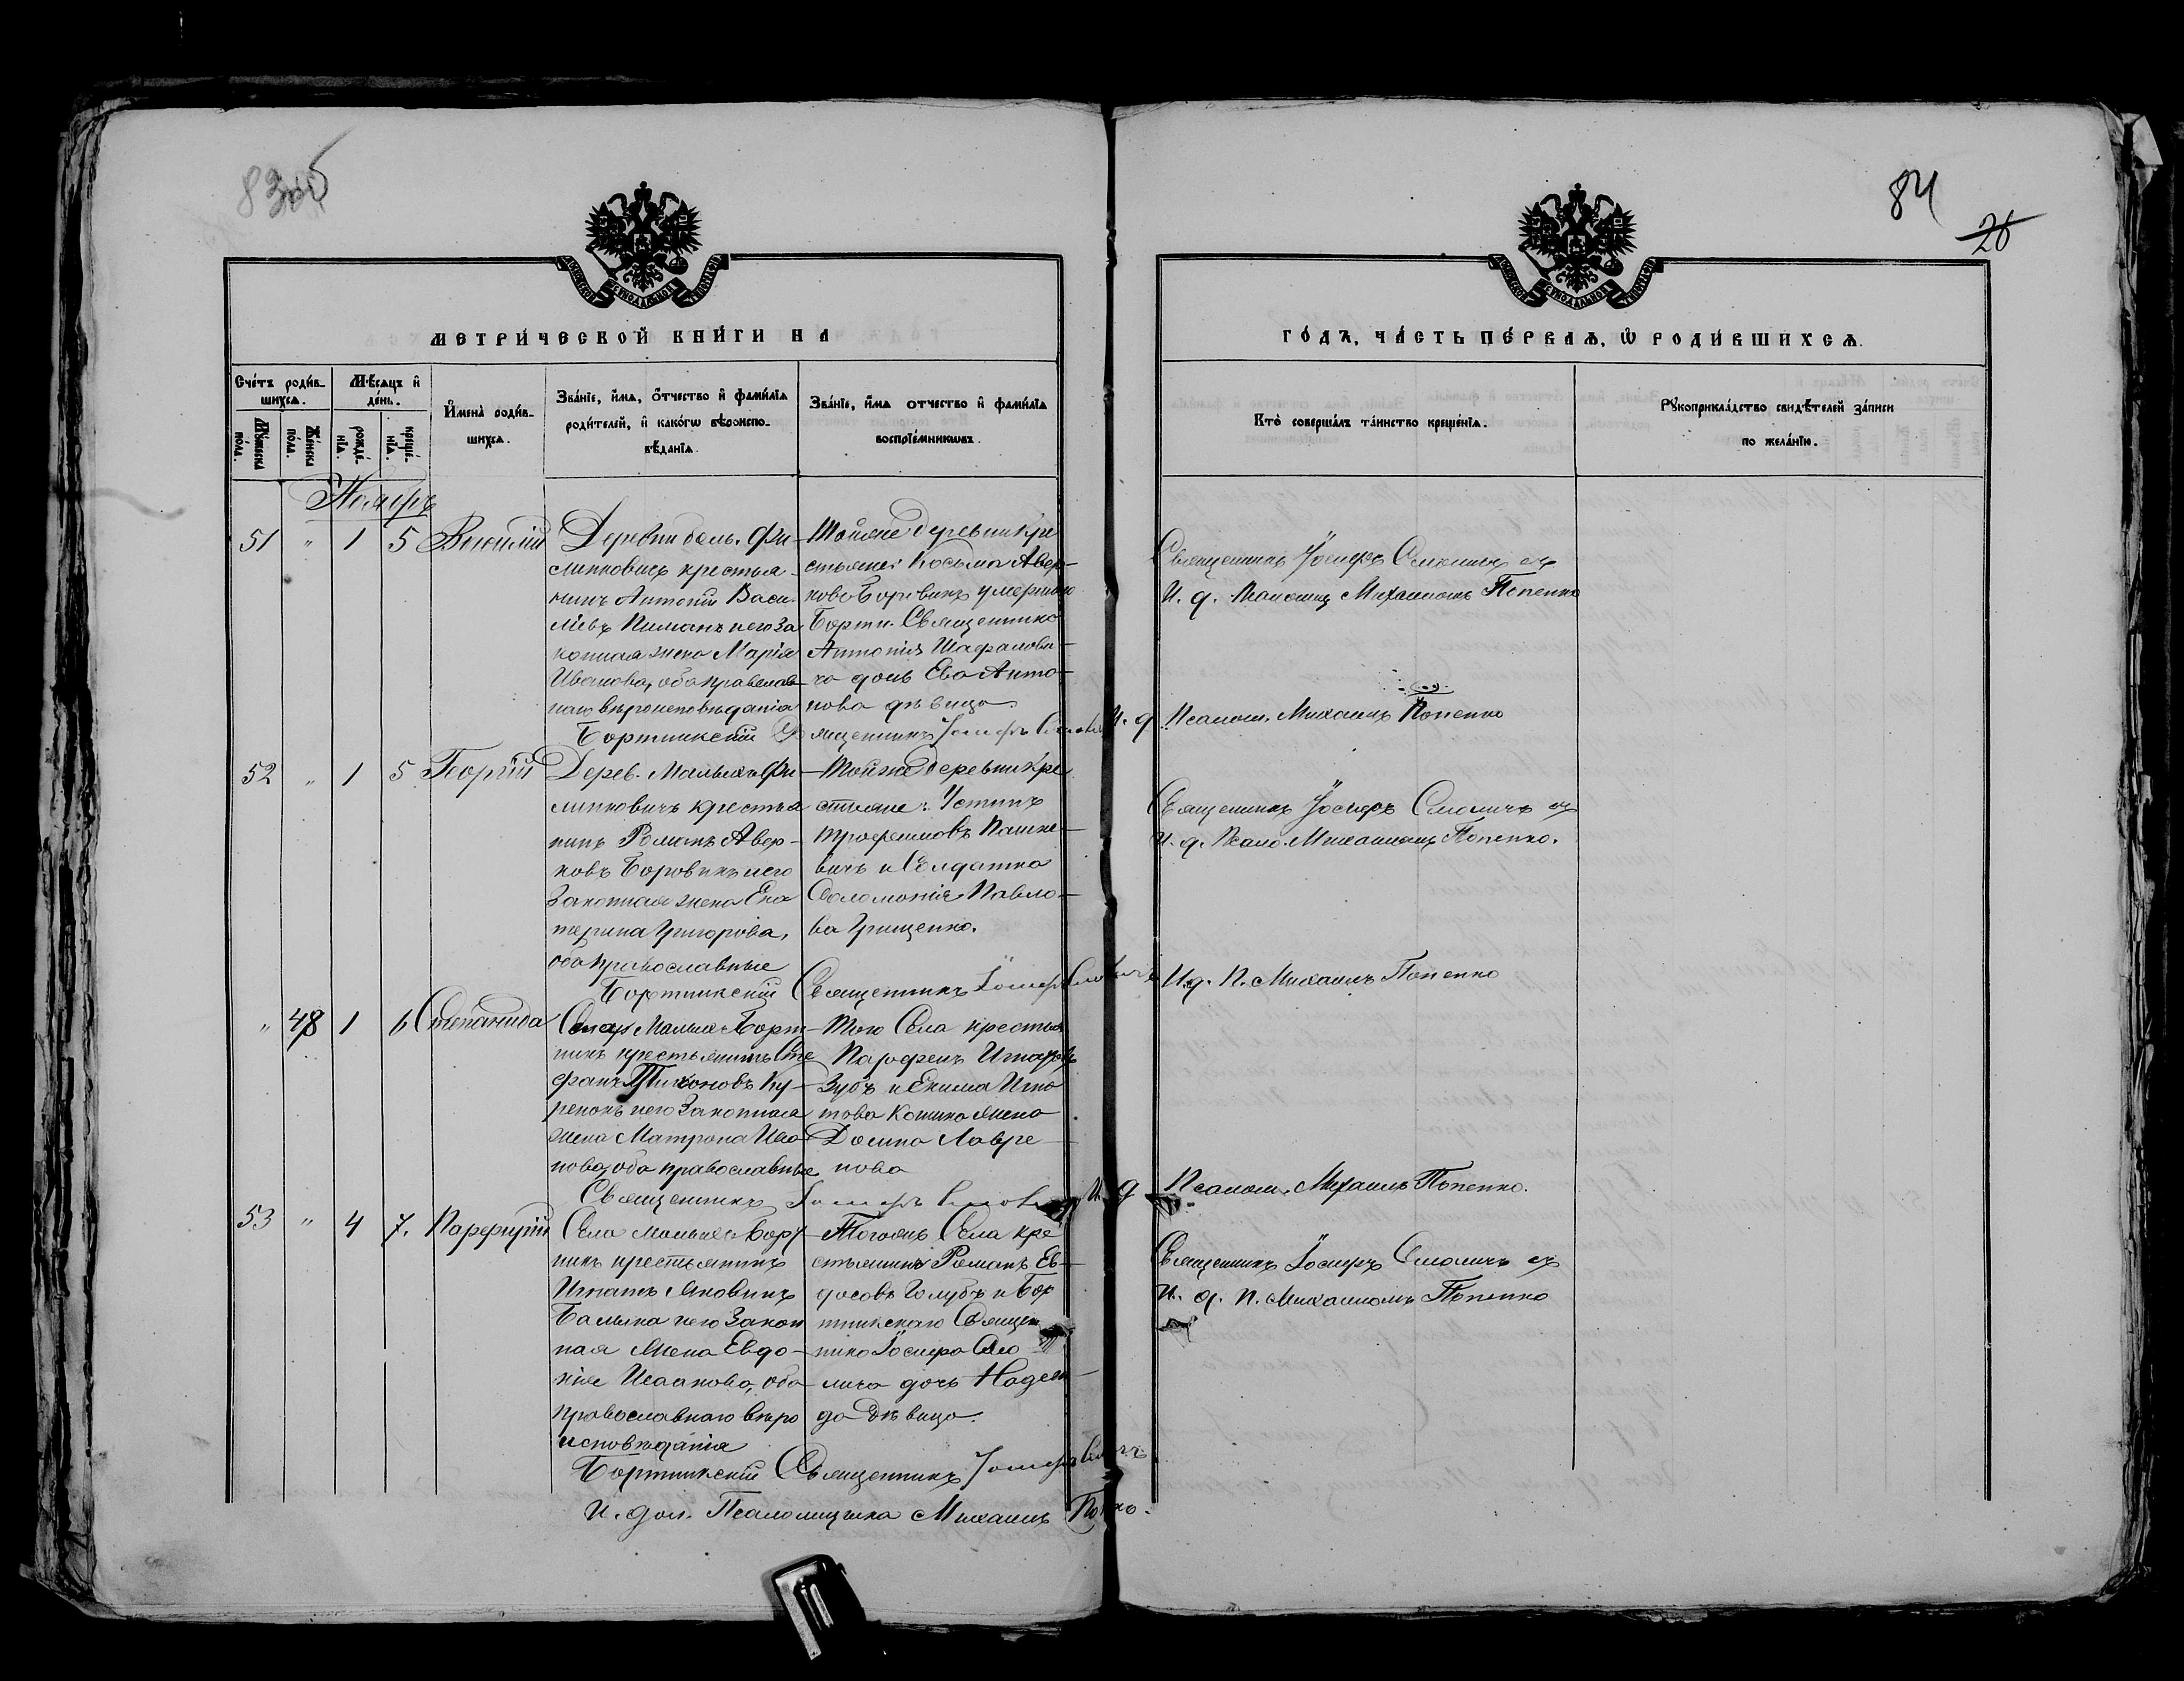 83об
84
26
МЕТРИ́ЧЕСКОЙ КНИ́ГИ НА
ГО́ДЪ, ЧА́СТЬ ПЕ́РВАѦ, Ѽ РОДИ́ВШИХСѦ.
Сче́тъ роди́в-
шихсѧ.
Мꙋ́жеска по́ла.
Же́нска по́ла.
Мѣ́сѧцъ и де́нь.
рожде́-нїѧ.
креще́-нїѧ.
И҆мена̀ роди́в-
шихсѧ.
Зва́нїе, и҆́мѧ, ѻ҆́тчество и҆ фами́лїѧ
роди́телей, и҆ како́гѡ вѣроиспо-
вѣ́данїѧ.
Зва́нїе, и҆́мѧ ѻтчество и҆ фами́лїѧ
воспрїе́мникѡвъ.
Кто̀ соверша́лъ та́инство креще́нїѧ.
Рꙋкоприкла́дство свидѣ́телей за́писи
по жела́нїю.
Ноябрь
51 " 1 5 Василій
Деревни Фи-
липповичъ крестья-
нинъ Антоній Васи-
ліевъ и его за
конная жена Марія
Иванова, оба православ-
наго вѣроисповѣданія
Тойже деревни кре
стьяне: Косьма Авер-
ковъ Боровикъ и
Бортн. Священника
Антонія
дочь Ева Анто-
нова дѣвица
Священникъ Іосифъ Смоличъ съ
И. д. Михаиломъ Попенко
Бортникскій Священникъ Іосифъ Смоличъ И. д. Псалом. Михаилъ Попенко
52 " 1 5 Георгій
Дерев. Малыхъ Фи-
липповичъ крестья
нинъ Романъ Авер-
ковъ Боровикъ и его
Законная жена Ека
терина Григорова,
оба православные
Тойже деревни кре
стьяне: Устинъ
Трофимовъ Пашке-
вичъ и Солдатка
Соломонія Павло-
ва Грищенко.
Священникъ Іосифъ Смоличъ съ
И. д. Псало. Михаиломъ Попенко.
Бортникскій Священникъ Іосифъ Смоличъ И. д. П. Михаилъ Попенко
" 48 1 6 Степанида
Села Малыхъ Борт-
никъ крестьянинъ Сте
фанъ Тихоновъ Ку-
ренокъ и его Законная
жена Матрона Ива-
нова, оба православные
Того Села крестьян
Парфенъ Игнатовъ
Зубъ и Игна
това жена
Домна Лавре-
нова
Священникъ Іосифъ Смоличъ И. д. Псалом. Михаилъ Попенко.
53 " 4 7. Парфутій
Села Малыхъ Борт-
никъ крестьянинъ
Игнатъ Яковинъ
и его Закон
ная Жена Евдо-
кія Исаакова, оба
православнаго вѣро
исповѣданія
Тогожъ Села кре
стьянинъ Романъ Ев-
досовъ Голубъ и Бор
тникскаго Священ
ника Іосифа Смо
лича дочь Надеж-
да Дѣвица.
Священникъ Іосифъ Смоличъ съ
И. д. П. Михаиломъ Попенко
Бортникскій Священникъ Іосифъ Смоличъ
И. дол. Псаломщика Михаилъ Попенко.